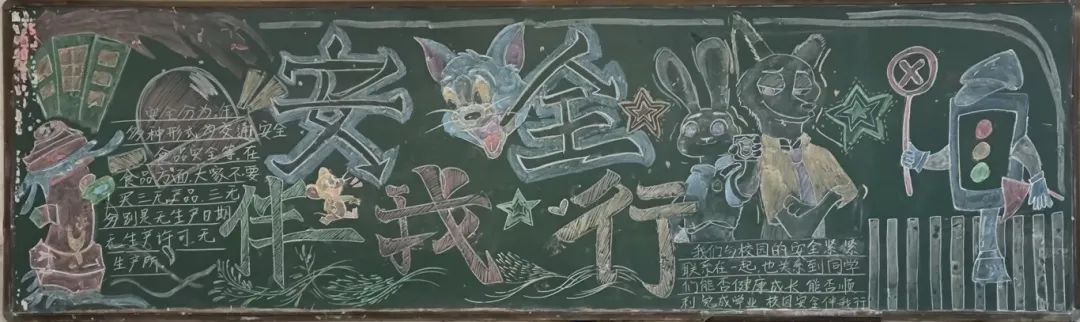 安全
伴我行
安全分为年
多种形式为交通安全
食品安全等,在
食品方面大家不要
买三无产品,三无
分别是无生产日期
无生产许可,无
生产所
我们与校园的安全紧紧
联系在一起,也关系到同学
们能否健康成长,能否顺
利完成学业,校园安全伴我行